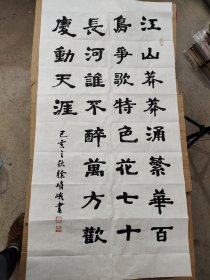 江山莽莽涌繁華百
鳥爭歌特色花七十
長河誰不醉萬方歡
慶動天涯
己亥之秋徐靖峨書